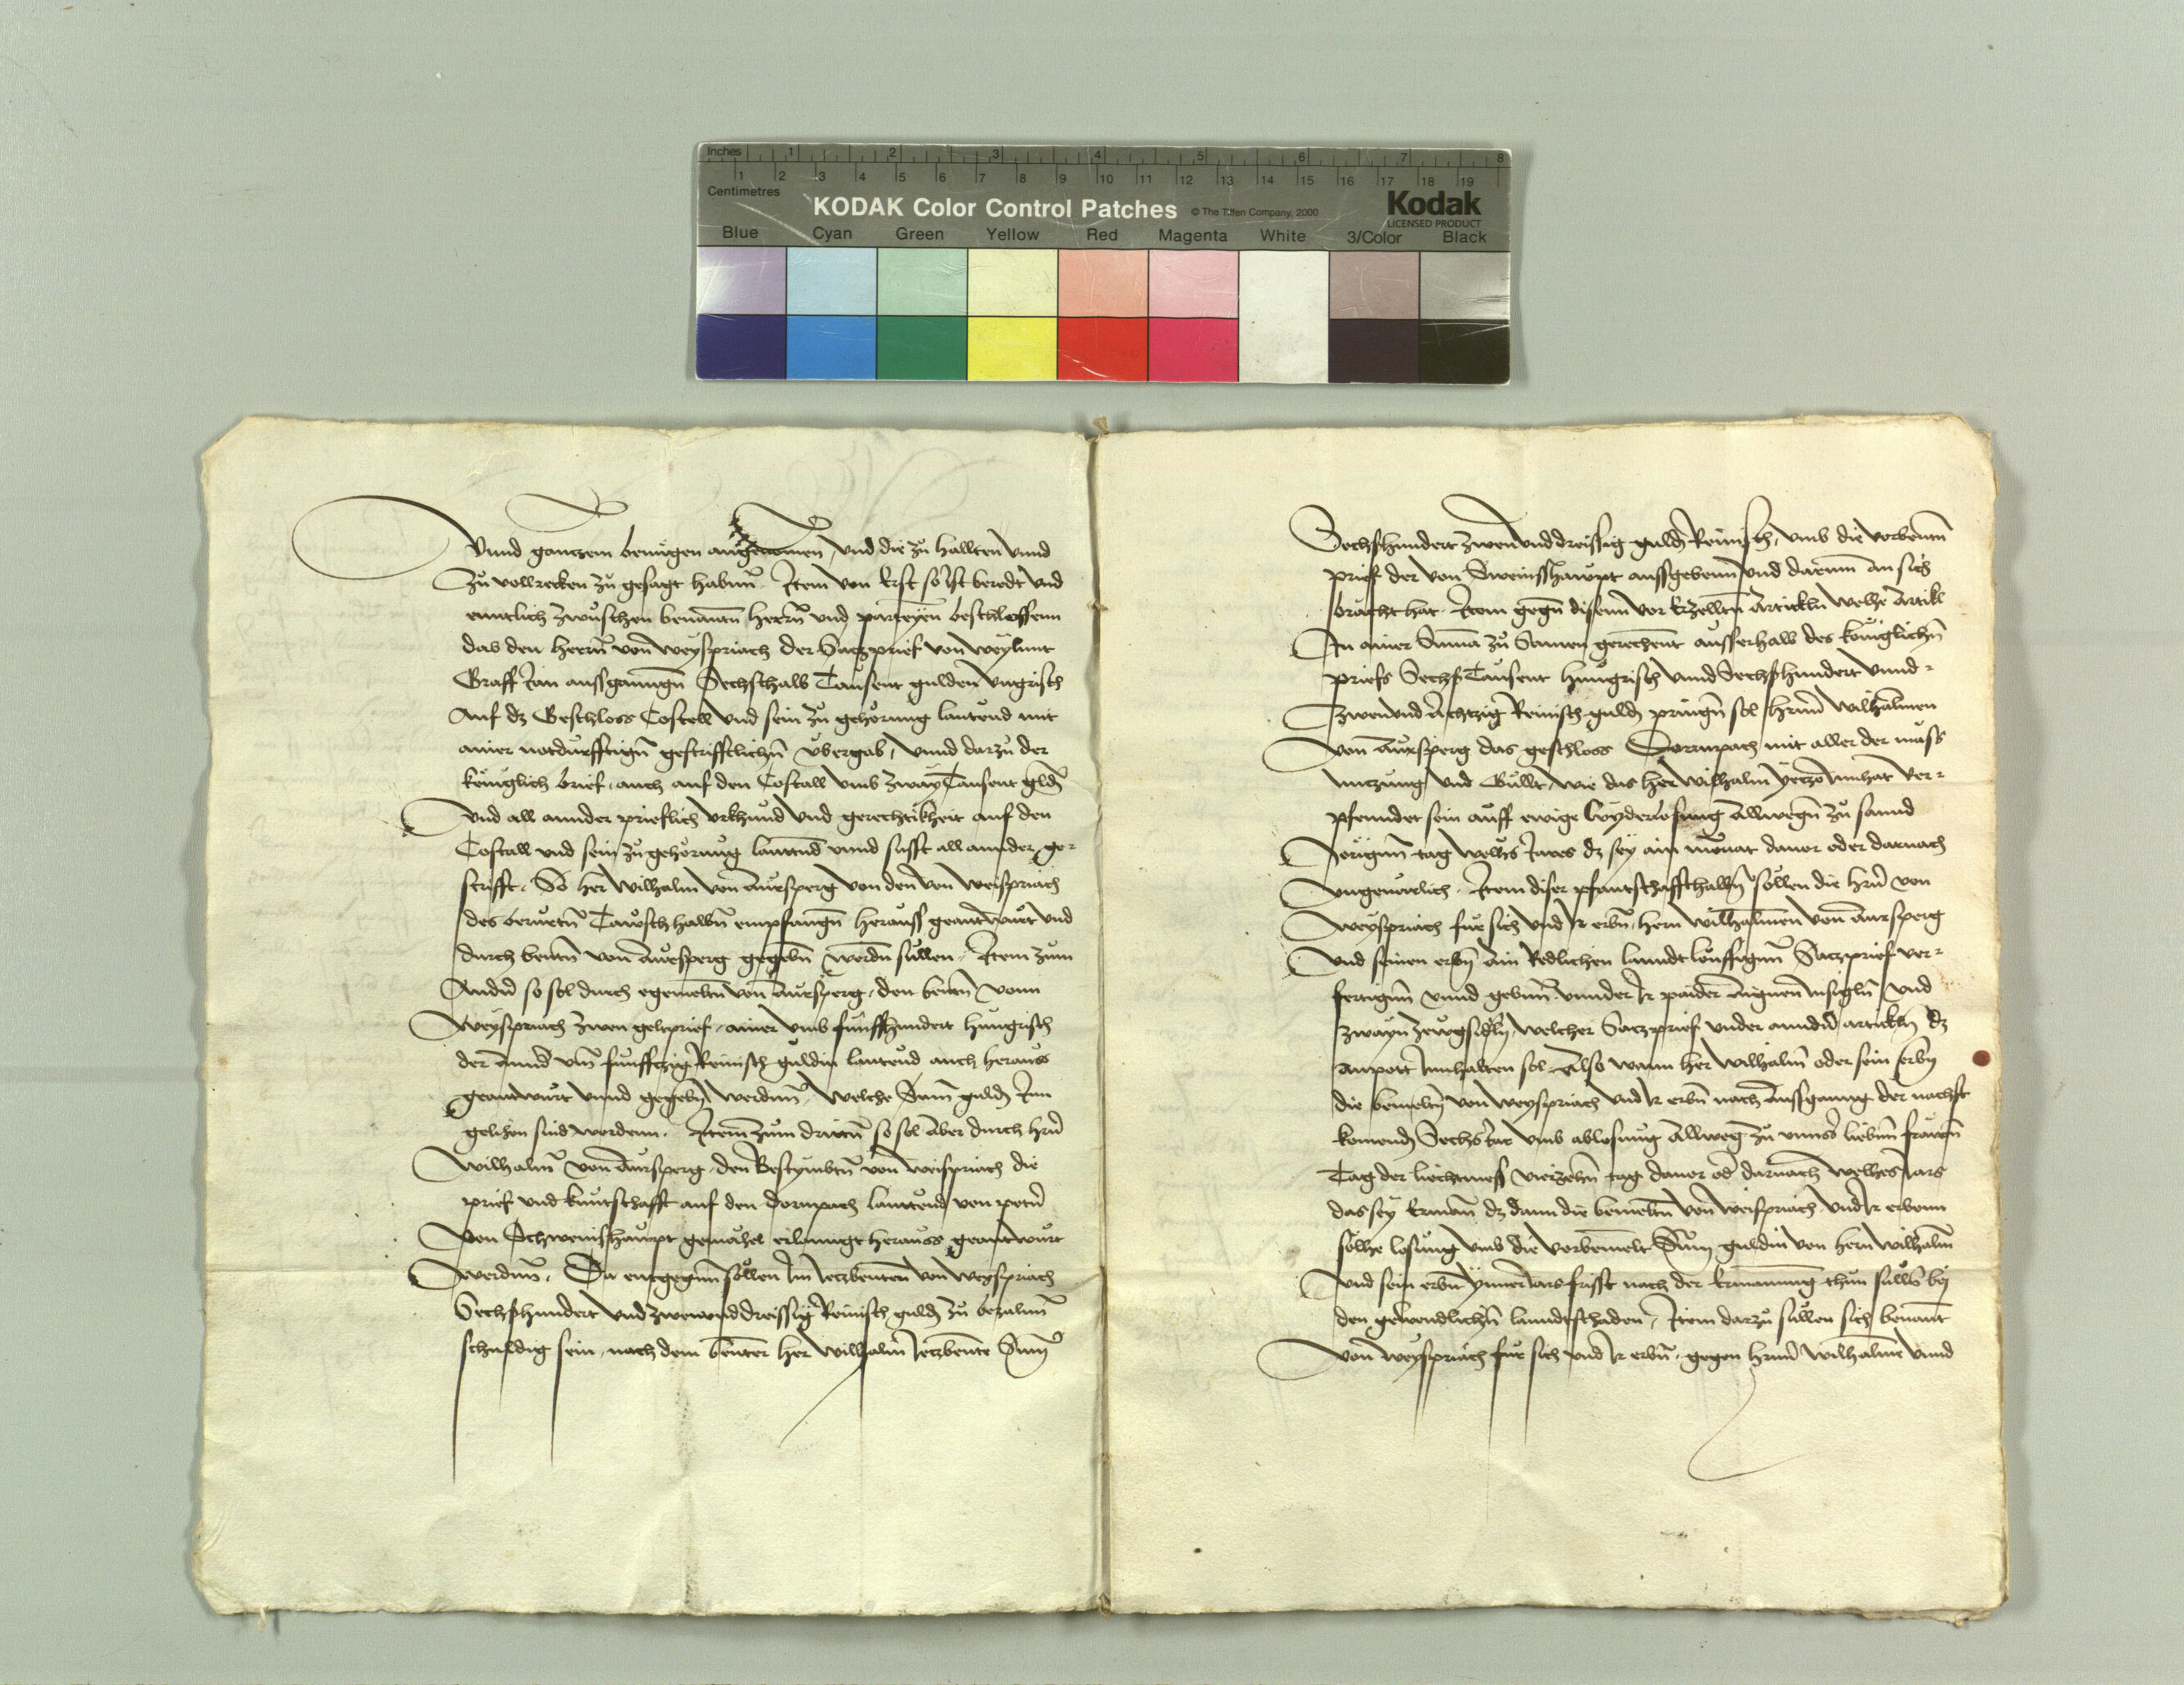 Inches 1 2 3 4 5 6 7 8
1 2 3 4 5 6 7 8 9 10 11 12 13 14 15 16 17 18 19
Centimetres
KODAK Color Control Patches © The Tiffen Company, 2000 Kodak
LICENSED PRODUCT
Blue Cyan Green Yellow Red Magenta White 3/Color Black
Vnnd ganczem benugen angenomen, vnd die zu hallten vnnd
zu vollrecken zu gesagt habnn. Item von Erst so ist beredt vnd
entlich zwuschen benantn herrn vnd parteyen beschlossenn
das den herrn von Weyspriach der Saczprief von weylunt
Graff Jan aussganngn Sechsthalb Tausent gulden vngrisch
Auf dz Geschloss Costell vnd sein zu gehorung lautend mit
ainer notdurfftign geschrifftlichn vbergab, vnnd darzu der
koniglich brief, auch auf den Costall vmb zway Tausent gldn
Vnd all annder prieflich vrkhund vnd gerechtikheit auf den
Costall vnd sein zu gehorung lauttnd vnnd susst all annder ge-
schrifft, So her Wilhalm von Aursperg von den von Weispriach
des beruetn Tawsch halbn empfangn herauss geantwurt vnd
durch bentn von Aursperg gegebn werdn sullen, Item zum
Andern so sol durch egemeltn von Aursperg, den bentn vonn
Weyspriach zwen geltprief, ainer vmb funffhundert hungrisch
der Annd vm funffczig Reinisch guldin lautend auch heraus
geantwurt vnnd gegebn werdnn, Welche Sum guldn Inn
gelihen sind wordenn. Item zum dritn so sol Aber durch hrn
Wilhalm von Aursperg, den Bestymbtn von Weispriach die
prief vnd kuntschafft auf den Dornpach lauttend von petrn
Von Schweinshaupt gemahel erlanngt herauss geantwurt
werdnn, Da entgegnn sollen Im Iczbenten von Weyspriach
Sechshundert vnd zwenvnddreissig Reinisch guldn zu bezalnn
schuldig sein, nach dem benter her Wilhalm Iczbente Sum
Sechshundert zwenvnddreissig guldn Reinisch, vmb die vorbentn
prief der von Sweinsshawpt aussgebenn vnd darumb an sich
bracht hat. Item gegn disenn vor Erzelltn Artickln welhe Artikl
In ainer Suma zu Samen gerechent ausserhalb des koniglichn
priefs Sechs Tausent hungrisch vnnd Sechshundert vnnd-
Zwenvnd Achtzig Reinisch guldn pringn sol hrnn Wilhalmen
von Aursperg das geschloss Dornpach mit aller der mass
nuczung vnd Gullt, wie das her Wilhalm yeczo Innhat ver-
pfenndet sein auff ewige Wyderlosung Allwegn zu sannd
Jorignn tag welhs Jares dz sey ain monat dauor oder darnach
vngeuerlich. Item diser pfantschaffthalbn sollen die hrn von
Weyspriach fur sich vnd Ir erbn, hern Wilhalmen von Aursperg
Vnd seinen erbn ain Redlichen lanndtleuffignn Saczprief ver-
fertignn vnnd gebnn vnnder Ir paider Aignen Insigln vnd
zwayn zewgsidln, welcher Saczprief vnder anndern artickln dz
Innhalten sol. Also wann her Wilhalm oder sein Erbn
die bemeltn von Weyspriach vnd Ir erbn nach Aussganng der nachst
komendn Sechs Jar vmb ablosung Allweg zu vnnser liebnn frawn
Tag der liechtmess vierzehn tag dauor oder darnach welhes Jars
das sey Ermann dz dann die bemeltn von Weispriach vnd Ir erbenn
solhe losung vmb die vorbemelt Sum guldin von hern Wilhalm
Vnd sein erbn ynner Jars frisst nach der Ermannung thun sulln bey
den gewondlichn lanndtschaden, Item darzu sullen sich benant
von Weyspriach fur sich vnd Ir erbn, gegen hrnn Wilhalmen vnnd